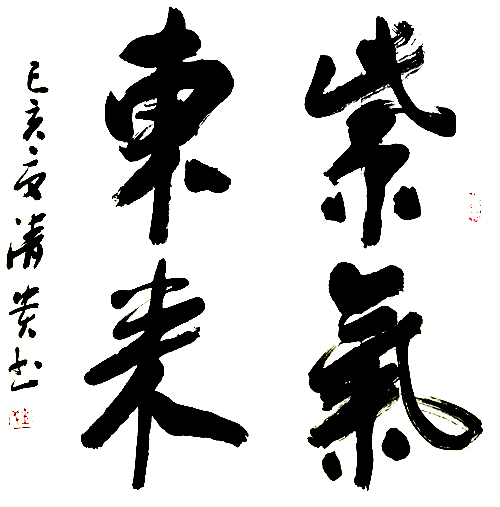 紫氣
東来
己亥夏清贵书